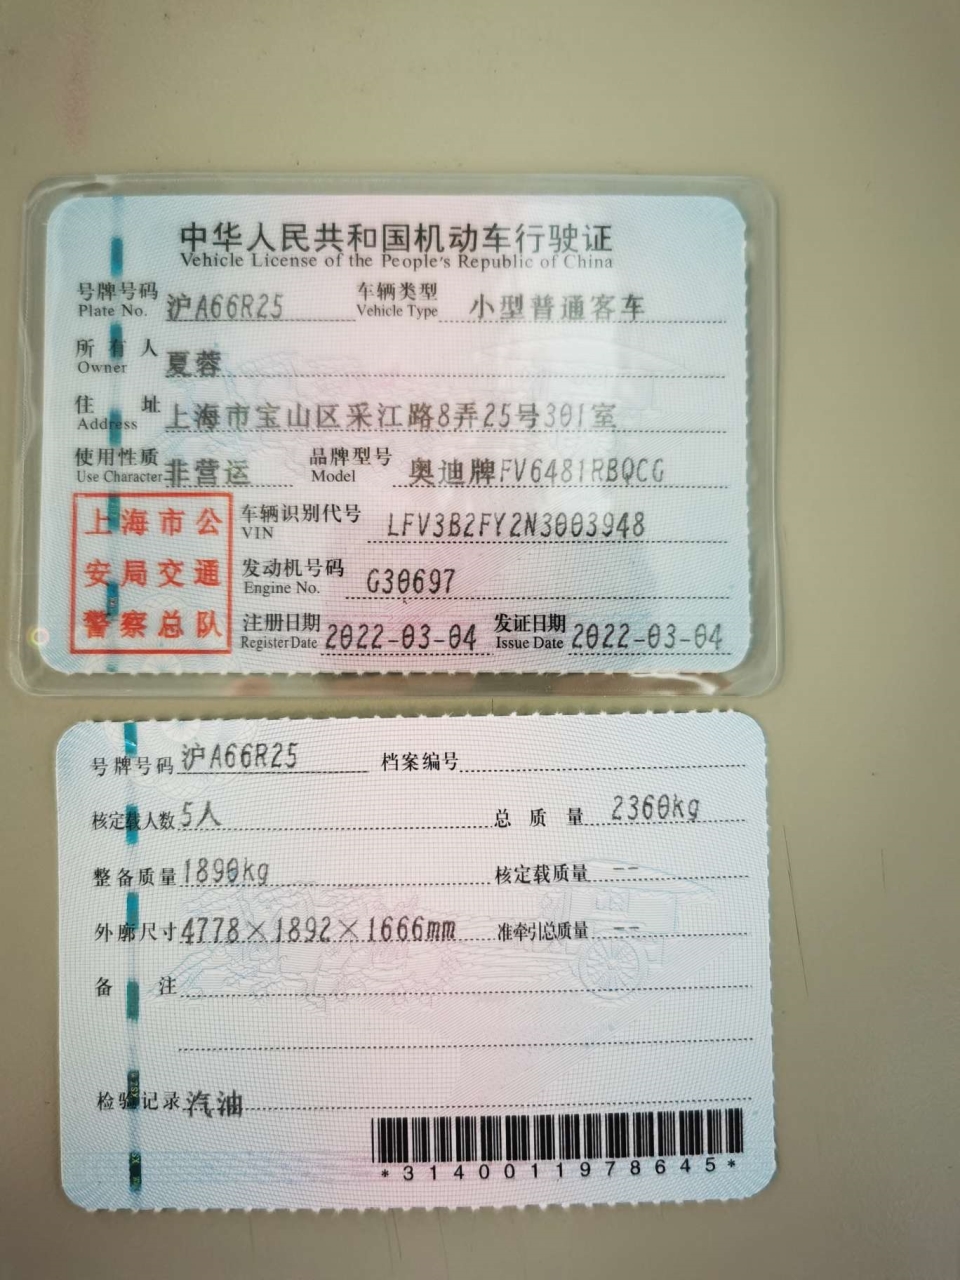 中华人民共和国机动车行驶证
Vehicle License of the People's Republic of China
号牌号码 沪A66R25 车辆类型 小型普通客车
Plate No. Vehicle Type
所有人 夏蓉
Owner
住址 上海市宝山区采江路8弄25号301室
Address
使用性质 非营运 品牌型号 奥迪牌FV6481RBQCG
Use Character Model
上海市公
安局交通
警察总队
车辆识别代号 LFV3B2FY2N3003948
VIN
发动机号码 G30697
Engine No.
注册日期 2022-03-04 发证日期 2022-03-04
Register Date Issue Date
号牌号码 沪A66R25 档案编号
核定载人数 5人 总质量 2360kg
整备质量 1890kg 核定载质量 --
外廓尺寸 4778×1892×1666mm 准牵引总质量 --
备注
检验记录 汽油
*3140011978645*